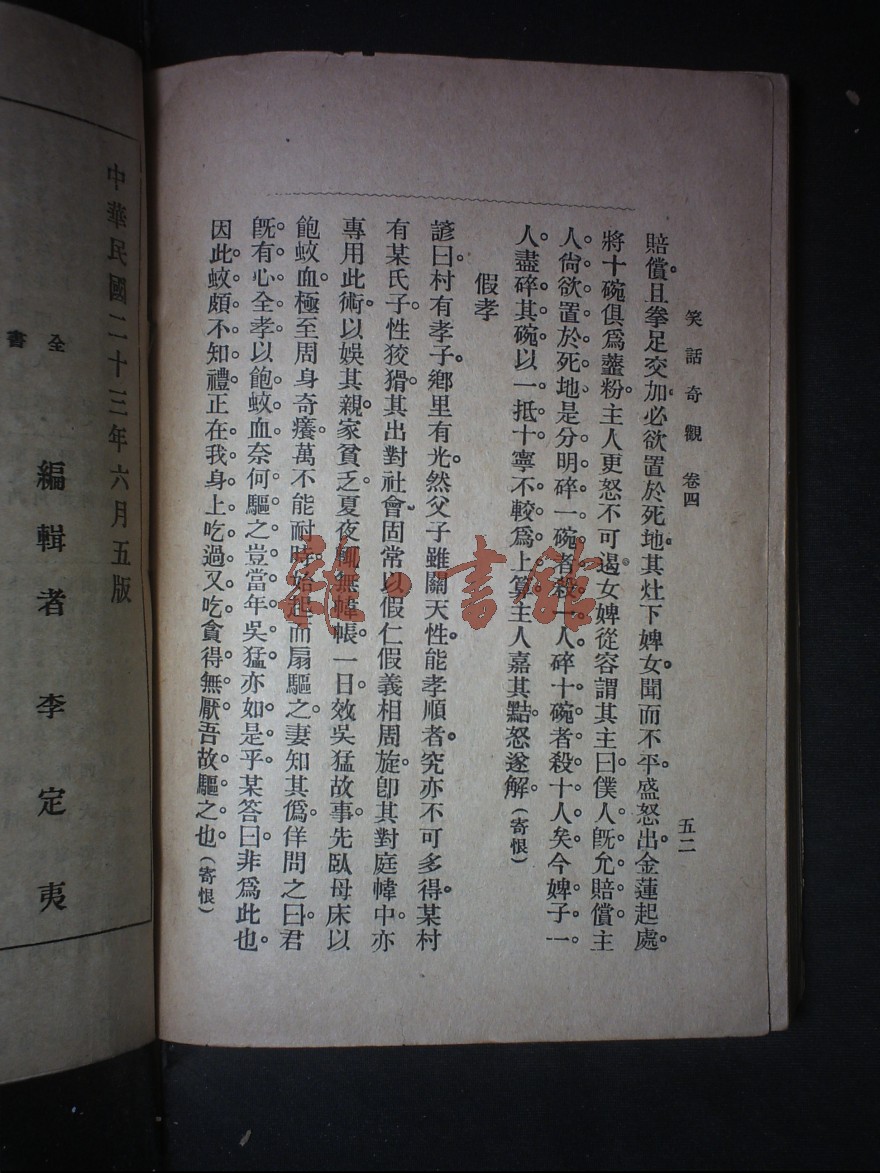 笑話奇觀 卷四 五二
賠償。且拳足交加。必欲置於死地。其灶下婢女。聞而不平。盛怒出。金蓮起處。
將十碗俱爲虀粉。主人更怒不可遏。女婢從容謂其主曰。僕人旣允賠償。主
人尙欲置於死地。是分明碎一碗者。殺一人。碎十碗者。殺十人矣。今婢子一
人盡碎其碗。以一抵十。寧不較爲上算。主人嘉其黠。怒遂解。(寄恨)
假孝
諺曰。村有孝子。鄉里有光。然父子雖關天性。能孝順者。究亦不可多得。某村
有某氏子。性狡猾。其出對社會。固常以假仁假義相周旋。卽其對庭幃中。亦
專用此術。以娛其親。家貧乏。夏夜輒無幃帳。一日。效吳猛故事。先臥母床以
飽蚊血。極至周身奇癢。萬不能耐時。始起而扇驅之。妻知其僞。佯問之曰。君
旣有心全孝。以飽蚊血。奈何驅之。豈當年吳猛亦如是乎。某答曰。非爲此也。
因此蚊頗不知禮。正在我身上吃過又吃。貪得無厭。吾故驅之也。(寄恨)
中華民國二十三年六月五版
全書
編輯者 李定夷
龍〇書館